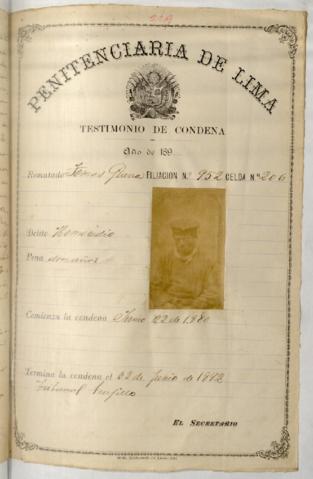 PENITENCIARIA DE LIMA
TESTIMONIO DE CONDENA
Año de 189
Rematado FILIACION N.º 952 CELDA N.º 206
Delito Homicidio
Pena dos años
Comienza la condena 22 de
Termina la condena el 22 de Junio de
Tribunal Trujillo
EL SECRETARIO